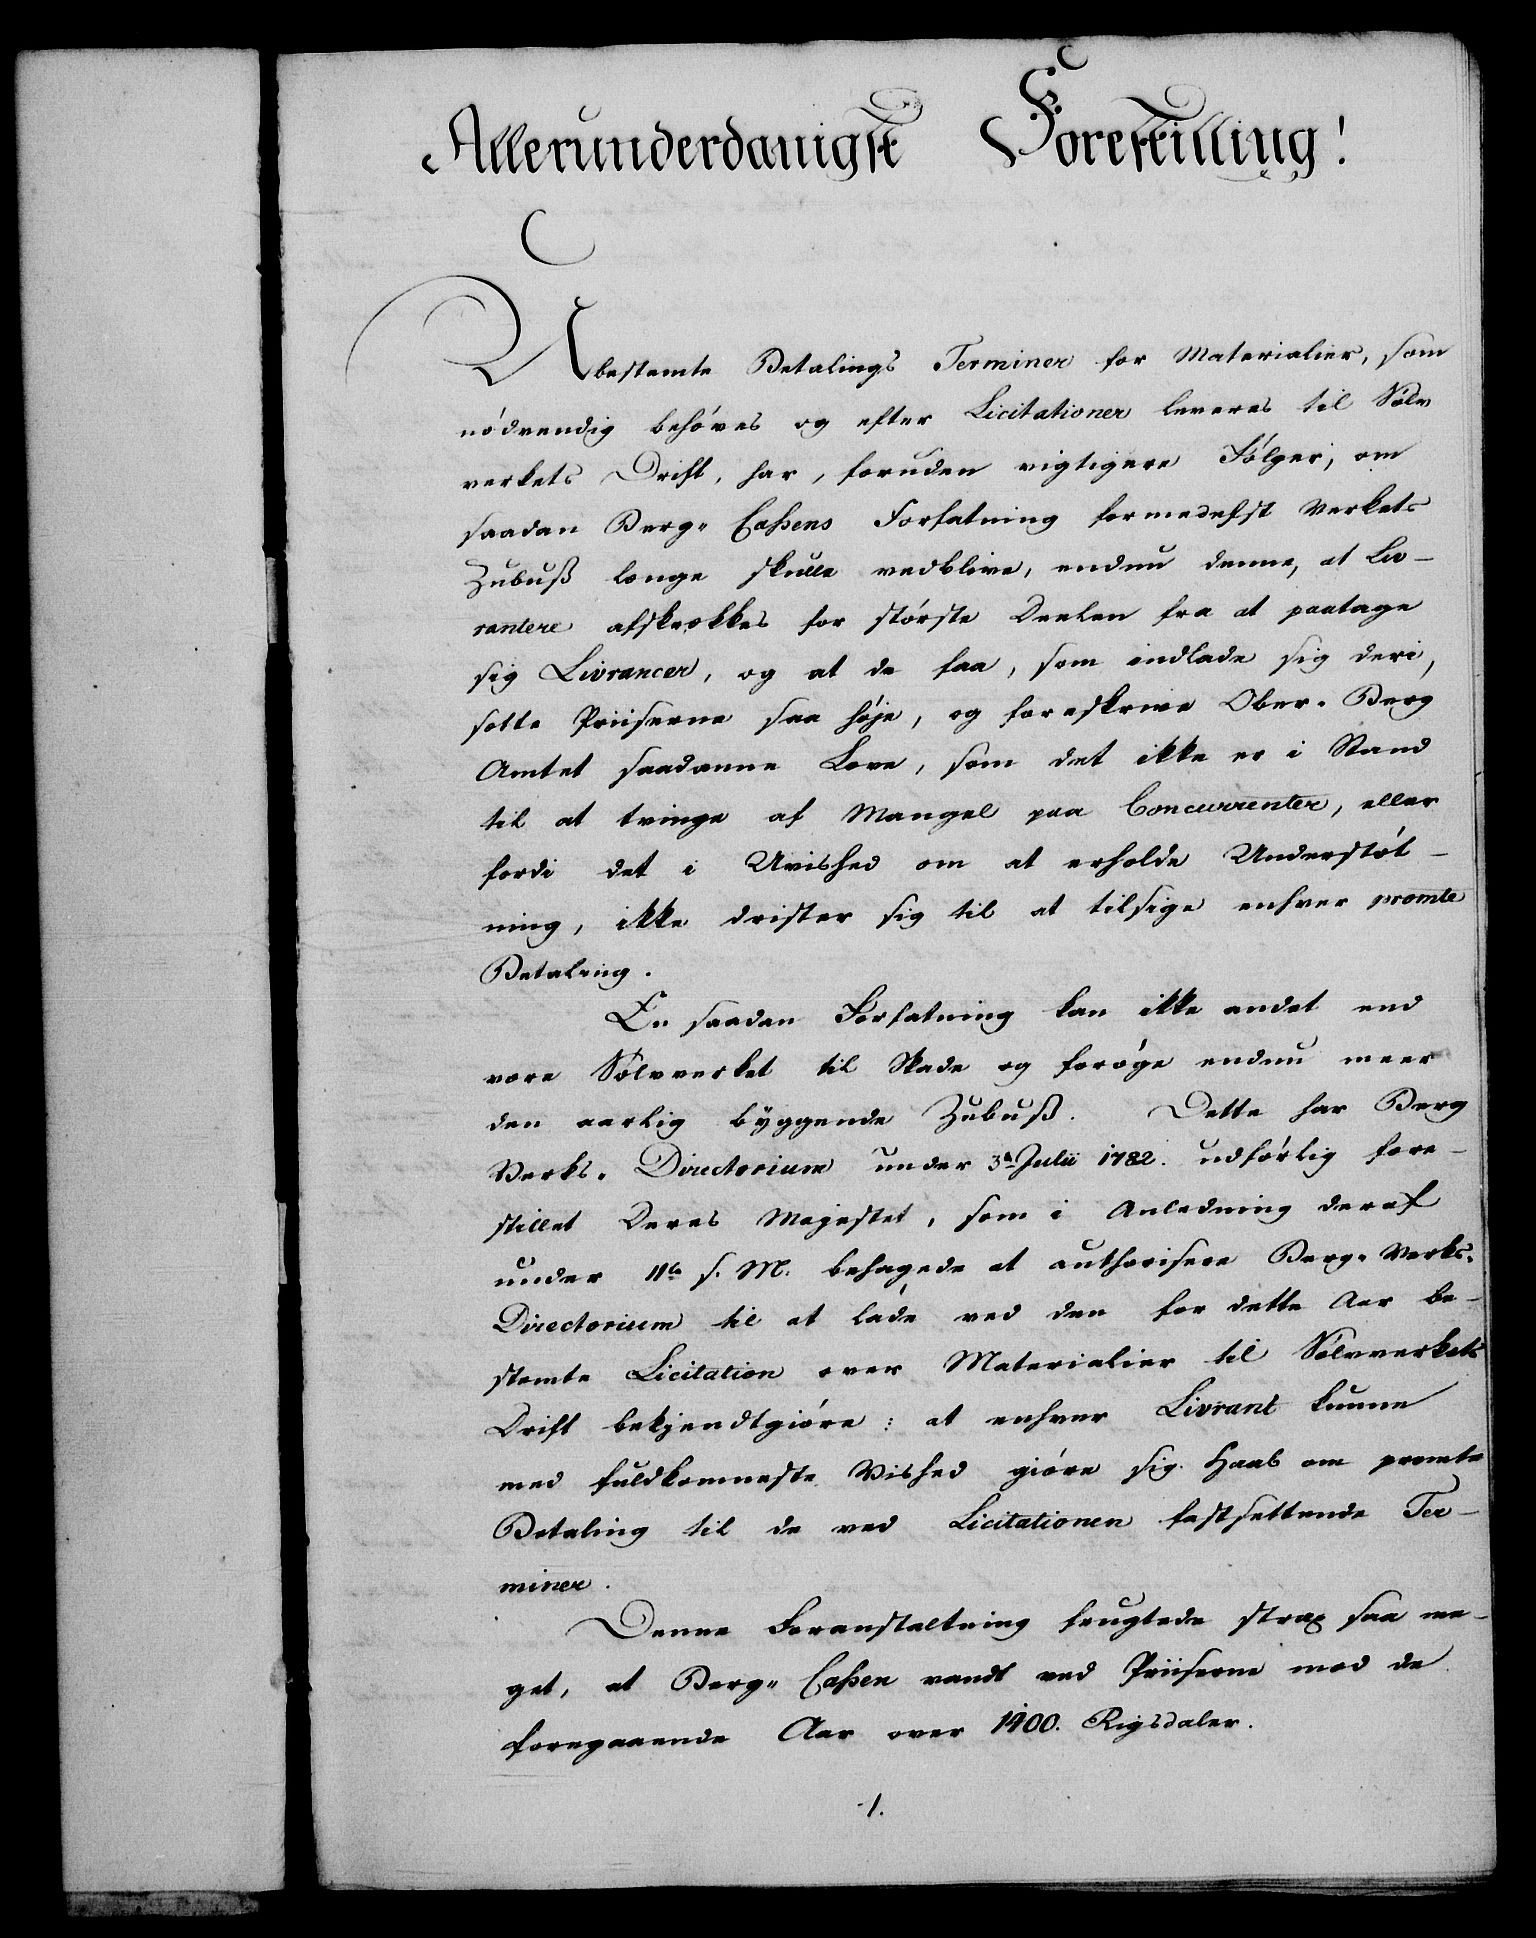 Allerunderdanigst Forestilling!
Ubestemte Betalings Terminer for Materialier, som
nödvendig behöves og efter Licitationer leveres til Sölv
verkets Drift, har, foruden vigtigere Fölger, om
saadan Berg„ Caßens Forfatning formedelst Verkets
Zubuß længe skulle vedblive, endnu denne, at Liv-
rantere afskrækkes for störste Deelen fra at paatage
sig Livrancer, og at de faa, som indlade sig deri,
sætte Priiserne saa höje, og foreskrive Ober„ Berg
Amtet saadanne Love, som det ikke er i Stand
til at tvinge af Mangel paa Concurrenter, eller
fordi det i Uvished om at erholde Understöt-
ning, ikke drister sig til at tilsige enhver promte
Betaling.
En saadan Forfatning kan ikke andet end
være Sölvverket til Skade og foröge endnu meer
den aarlig byggende Zubuß. Dette har Berg
Verks„ Directorium under 3die Julii 1782. udförlig fore-
stillet Deres Majestet, som i Anledning deraf
under 11te s. M. behagede at authorisere Berg„ Verks„
Directorium til at lade ved den for dette Aar be-
stemte Licitation over Materialier til Sölvverkets
Drift bekjendtgiöre: at enhver Livrant kunne
med fuldkomneste Vished giöre sig Haab om promte
Betaling til de ved Licitationen fastsettende Ter-
miner.
Denne Foranstaltning frugtede strax saa me-
get, at Berg„ Caßen vandt ved Priiserne mod de
foregaaende Aar over 1400. Rigsdaler.
1.